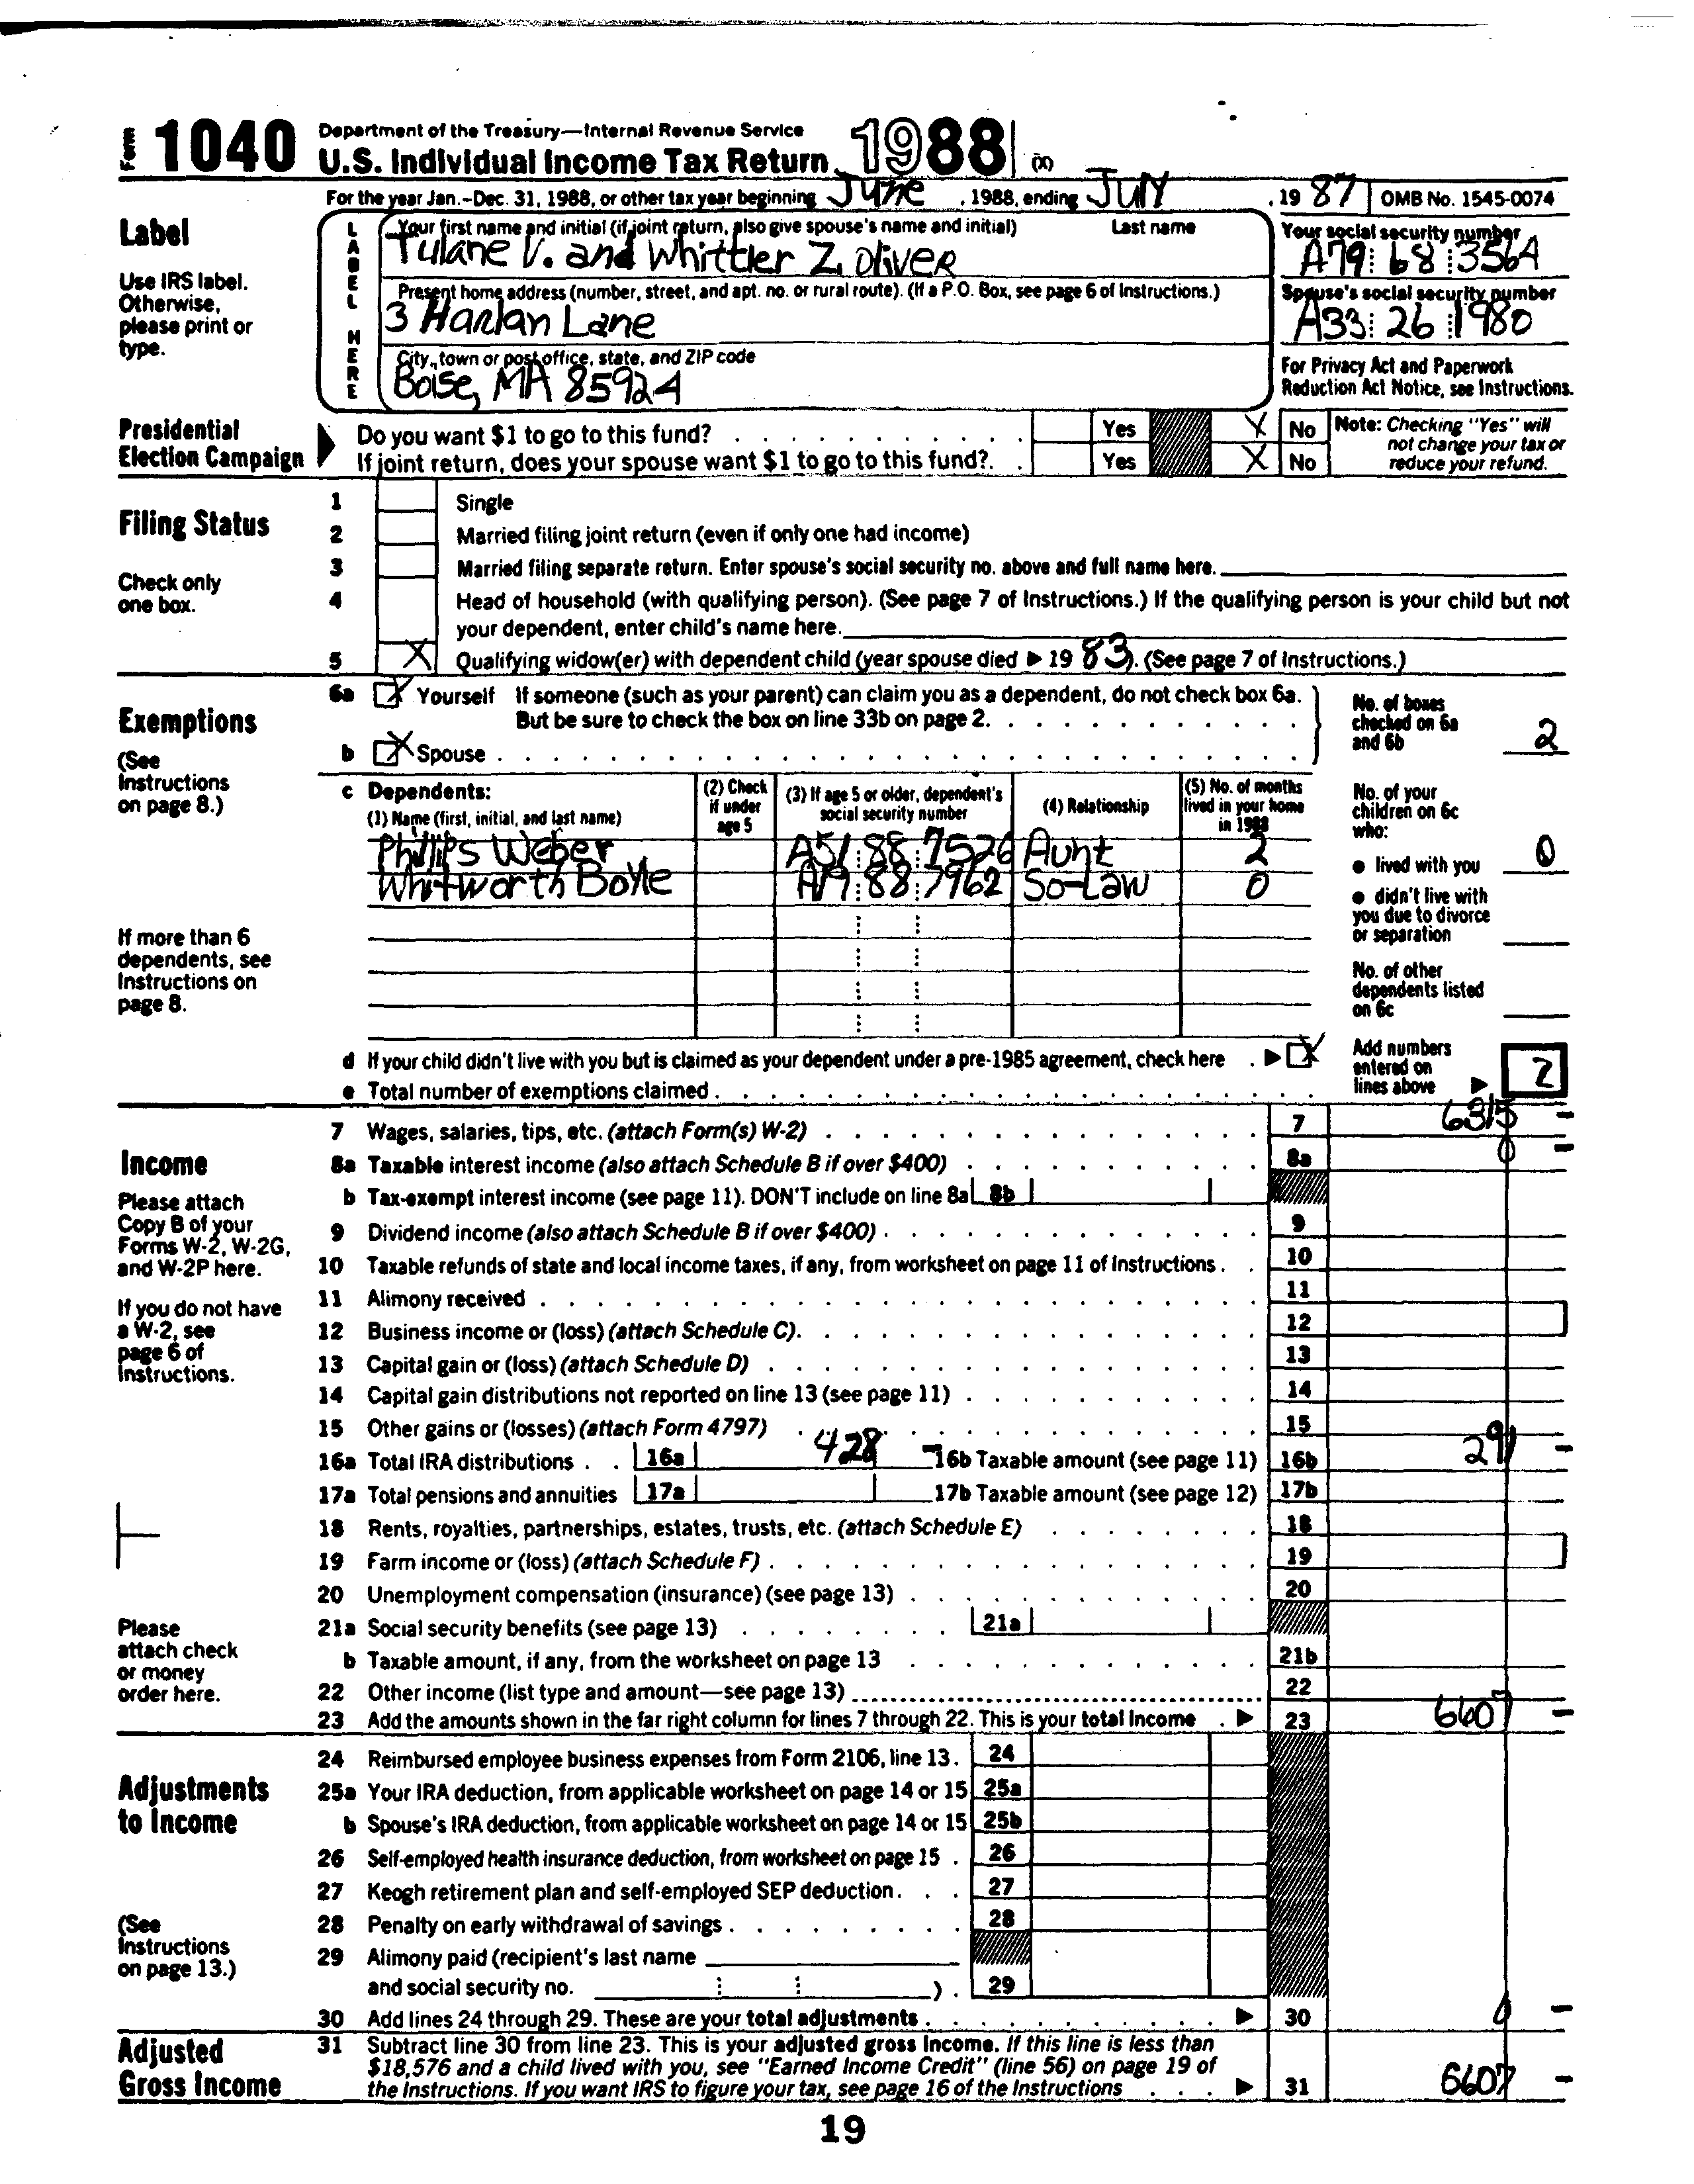 Form 1040 Department of the Treasury—Internal Revenue Service
U.S. Individual Income Tax Return 1988 (X)
For the year Jan.-Dec. 31, 1988, or other tax year beginning June , 1988, ending July , 19 87 OMB No. 1545-0074
Label
Use IRS label. Otherwise, please print or type.
LABEL HERE
Your first name and initial (if joint return, also give spouse's name and initial) Last name
Tulane V. and Whittler Z. Oliver
Your social security number
A79 68 3564
Present home address (number, street, and apt. no. or rural route). (If a P.O. Box, see page 6 of Instructions.)
3 Harlan Lane
Spouse's social security number
A33 26 1980
City, town or post office, state, and ZIP code
Boise, MA 85924
For Privacy Act and Paperwork Reduction Act Notice, see Instructions.
Presidential Election Campaign
Do you want $1 to go to this fund? Yes X No
If joint return, does your spouse want $1 to go to this fund? Yes X No
Note: Checking "Yes" will not change your tax or reduce your refund.
Filing Status
Check only one box.
1 Single
2 Married filing joint return (even if only one had income)
3 Married filing separate return. Enter spouse's social security no. above and full name here.
4 Head of household (with qualifying person). (See page 7 of Instructions.) If the qualifying person is your child but not
your dependent, enter child's name here.
5 X Qualifying widow(er) with dependent child (year spouse died ▶ 19 83). (See page 7 of Instructions.)
Exemptions
(See Instructions on page 8.)
6a X Yourself If someone (such as your parent) can claim you as a dependent, do not check box 6a.
But be sure to check the box on line 33b on page 2.
b X Spouse
No. of boxes checked on 6a and 6b 2
c Dependents:
(1) Name (first, initial, and last name)
(2) Check if under age 5
(3) If age 5 or older, dependent's social security number
(4) Relationship
(5) No. of months lived in your home in 1988
Phillips Weber A51 88 7526 Aunt 2
Whitworth Boyle A19 88 7962 So-Law 0
If more than 6 dependents, see Instructions on page 8.
No. of your children on 6c who:
● lived with you 0
● didn't live with you due to divorce or separation
No. of other dependents listed on 6c
d If your child didn't live with you but is claimed as your dependent under a pre-1985 agreement, check here ▶ X
e Total number of exemptions claimed
Add numbers entered on lines above ▶ 2
Income
Please attach Copy B of your Forms W-2, W-2G, and W-2P here.
If you do not have a W-2, see page 6 of Instructions.
7 Wages, salaries, tips, etc. (attach Form(s) W-2) 7 6315 –
8a Taxable interest income (also attach Schedule B if over $400) 8a 0 –
b Tax-exempt interest income (see page 11). DON'T include on line 8a 8b
9 Dividend income (also attach Schedule B if over $400) 9
10 Taxable refunds of state and local income taxes, if any, from worksheet on page 11 of Instructions 10
11 Alimony received 11
12 Business income or (loss) (attach Schedule C) 12
13 Capital gain or (loss) (attach Schedule D) 13
14 Capital gain distributions not reported on line 13 (see page 11) 14
15 Other gains or (losses) (attach Form 4797) 15
16a Total IRA distributions 16a 428 – 16b Taxable amount (see page 11) 16b 291 –
17a Total pensions and annuities 17a 17b Taxable amount (see page 12) 17b
18 Rents, royalties, partnerships, estates, trusts, etc. (attach Schedule E) 18
19 Farm income or (loss) (attach Schedule F) 19
20 Unemployment compensation (insurance) (see page 13) 20
Please attach check or money order here.
21a Social security benefits (see page 13) 21a
b Taxable amount, if any, from the worksheet on page 13 21b
22 Other income (list type and amount—see page 13) 22
23 Add the amounts shown in the far right column for lines 7 through 22. This is your total income ▶ 23 6607 –
Adjustments to Income
(See Instructions on page 13.)
24 Reimbursed employee business expenses from Form 2106, line 13. 24
25a Your IRA deduction, from applicable worksheet on page 14 or 15 25a
b Spouse's IRA deduction, from applicable worksheet on page 14 or 15 25b
26 Self-employed health insurance deduction, from worksheet on page 15 26
27 Keogh retirement plan and self-employed SEP deduction 27
28 Penalty on early withdrawal of savings 28
29 Alimony paid (recipient's last name
and social security no. ) 29
30 Add lines 24 through 29. These are your total adjustments ▶ 30 0 –
Adjusted Gross Income
31 Subtract line 30 from line 23. This is your adjusted gross income. If this line is less than
$18,576 and a child lived with you, see "Earned Income Credit" (line 56) on page 19 of
the Instructions. If you want IRS to figure your tax, see page 16 of the Instructions ▶ 31 6607 –
19